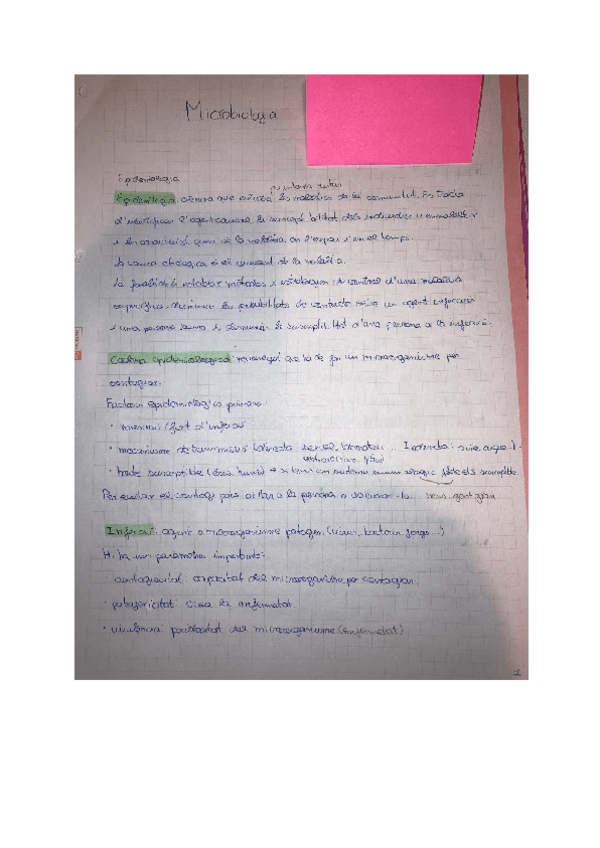 Microbiologia
Epidemiologia
Epidemiologia: ciència que estudia les malalties de la comunitat. Es tracta
d'identificar l'agent causant, la susceptibilitat dels individus
i les característiques de la malaltia en l'espai i en el temps.
la causa etiològica és el causant de la malaltia.
la finalitat és establir mètodes i estratègies de control d'una malaltia
específica. Disminuir les probabilitats de contacte entre un agent infecciós
i una persona sana i disminuir la susceptibilitat d'una persona a la infecció.
Cadena epidemiològica: recorregut que ha de fer un microorganisme per
contagiar.
Factors epidemiològics primaris:
· reservori / font d'infecció
· mecanisme de transmissió (directa Indirecta: aire, aigua
· hoste susceptible (ésser humà) → si tens un sistema immu susceptible
Per evitar el contagi pots aïllar a la persona o vacunar-la.
Infecció: agent o microorganisme patogen (virus, bacteris, fongs...)
Hi ha uns paràmetres importants:
· contagiositat: capacitat del microorganisme per contagiar.
· patogenicitat: crea la enfermetat.
· virulència: perillositat del microorganisme (enfermetat)
1